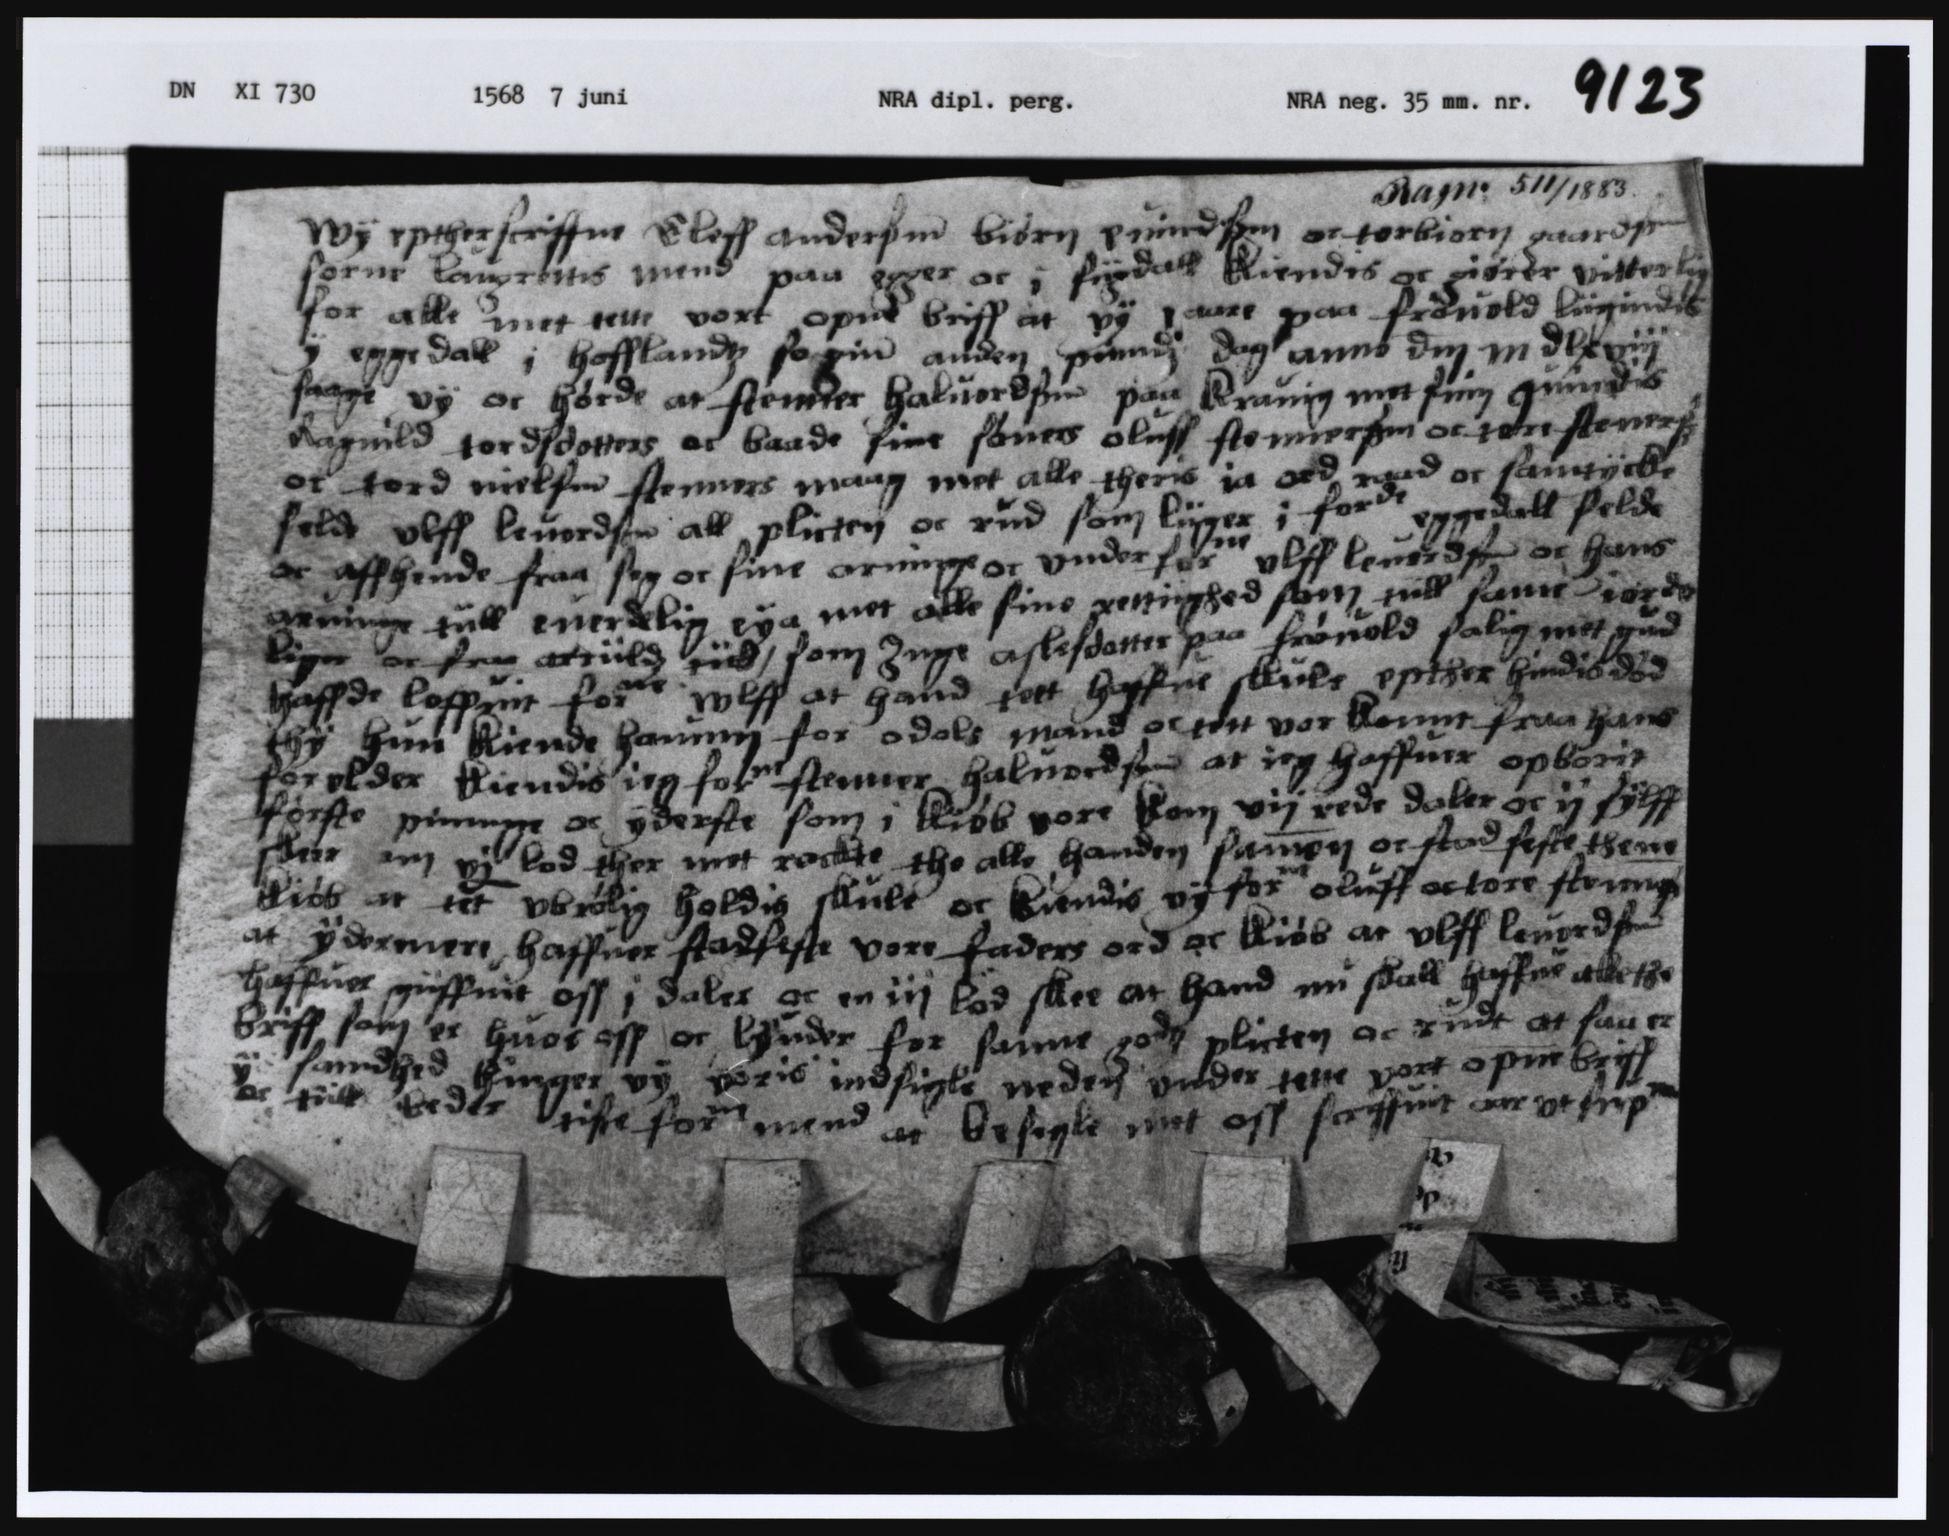 DN XI 730 1568 7 juni NRA dipl. perg. NRA neg. 35 mm. nr. 9123
511/1883.
Wÿ eptherscriffne Eleff andersøn biørn oc torbiorn
sorne laugrettis mend paa egger oc i sigdall Kiendis oc giører vitterlig
for alle met tette vort opne briff at vÿ vaare paa frøuold liigindis
ÿ eggedall i hofflandz sogin anden pindz dag anno dm m dlxviij
saage vÿ oc hørde at stenner haluordsøn paa Krauig met sin quindis
Ragnild tordsdotters oc baade sine søners oluff stennersøn oc tore steners
oc tord nielsøn stenners maag met alle theris ia ord raad oc samtÿcke
selde vlff leuordsøn all plicten oc rud som liiger i forde eggedall selde
oc affhende fraa seg oc sine arninge oc vnder forne vlff leuordsøn oc hans
arninge tiill euerdelig eÿa met alle sine rettiighed som tiill same iorder
liger oc fraa rud som Inge aslesdotter paa frøuold salig met gud
haffde loffuit forne wlff at hand tett haffue skule epther hindis død
thÿ hun Kiende hannum for odols mand oc tett vor Komit fraa hans
forelder Kiendis ieg forne stenner haluordsøn at ieg haffuer opborit
første pinninge oc ÿderste som i Kiøb vore Kom vij rede daler oc ij sølff
skeer om vj lod ther met rackte the alle handen samen oc stadfeste thene
Kiøb at tet vbrølig holdis skule oc Kiendis vÿ forne oluff oc tore stenners
at ÿdermere haffuer stadfeste vore faders ord oc Kiøb at vlff leuordsøn
haffuer giiffuit oss j daler oc en iij lod skee at hand nu skall haffue alle the
briff som er huos oss oc lÿuder for samme godz plicten oc rudt at saa er
ÿ sandhed hinger vÿ voris indsigle neden vnder tette vort opne briff
oc tiill beder tiste forne mend at besegle met oss scriffuit aar vt supra